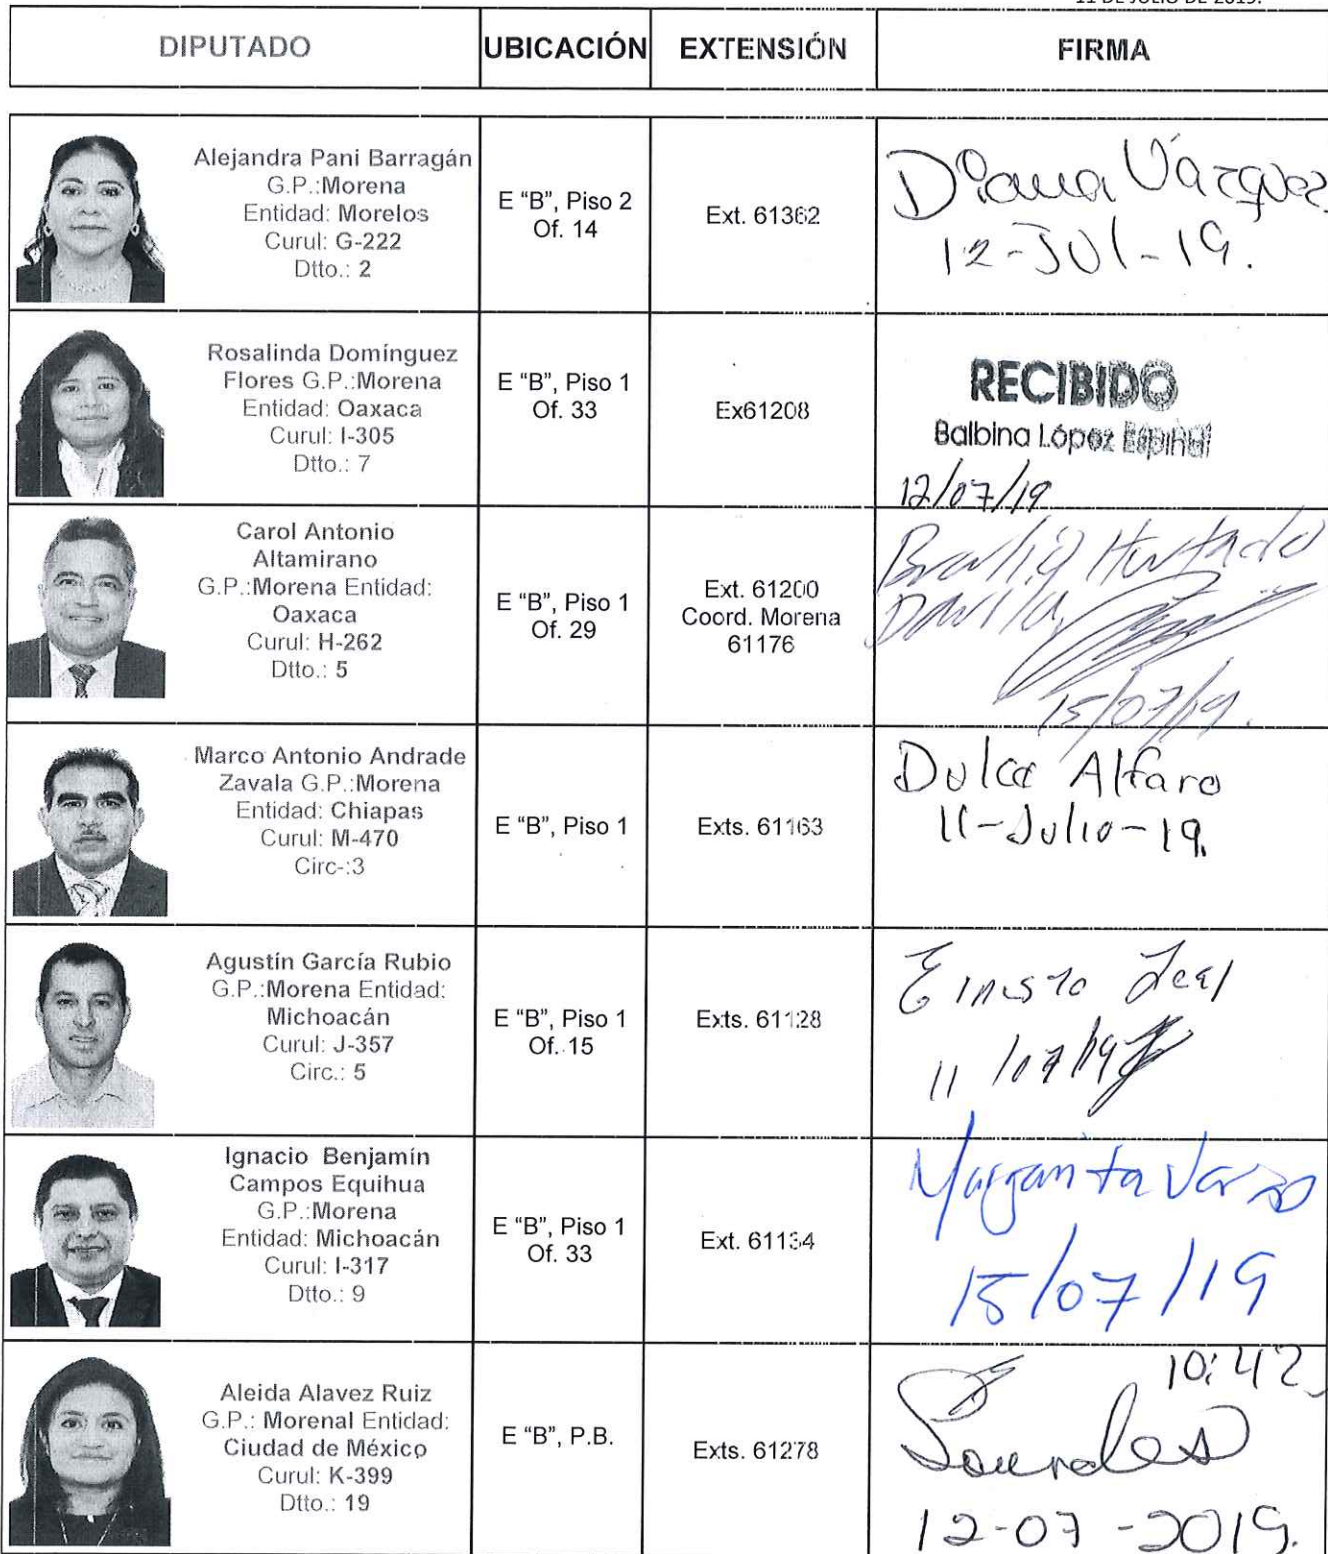 11 DE JULIO DE 2019.
DIPUTADO UBICACIÓN EXTENSIÓN FIRMA
Alejandra Pani Barragán
G.P.:Morena
Entidad: Morelos
Curul: G-222
Dtto.: 2
E “B”, Piso 2
Of. 14
Ext. 61362
Diana Vázquez
12-JUl-19.
Rosalinda Domínguez
Flores G.P.:Morena
Entidad: Oaxaca
Curul: I-305
Dtto.: 7
E “B”, Piso 1
Of. 33
Ex61208
RECIBIDO
Balbina López Espinal
12/07/19
Carol Antonio
Altamirano
G.P.:Morena Entidad:
Oaxaca
Curul: H-262
Dtto.: 5
E “B”, Piso 1
Of. 29
Ext. 61200
Coord. Morena
61176
Hurtado
Davila
15/07/19.
Marco Antonio Andrade
Zavala G.P.:Morena
Entidad: Chiapas
Curul: M-470
Circ-:3
E “B”, Piso 1
Exts. 61163
Dulce Alfaro
11-Julio-19.
Agustín García Rubio
G.P.:Morena Entidad:
Michoacán
Curul: J-357
Circ.: 5
E “B”, Piso 1
Of. 15
Exts. 61128
Leal
11/07/19
Ignacio Benjamín
Campos Equihua
G.P.:Morena
Entidad: Michoacán
Curul: I-317
Dtto.: 9
E “B”, Piso 1
Of. 33
Ext. 61134
Margarita
15/07/19
Aleida Alavez Ruiz
G.P.: Morenal Entidad:
Ciudad de México
Curul: K-399
Dtto.: 19
E “B”, P.B.
Exts. 61278
10:42
Lourdes
12-07-2019.